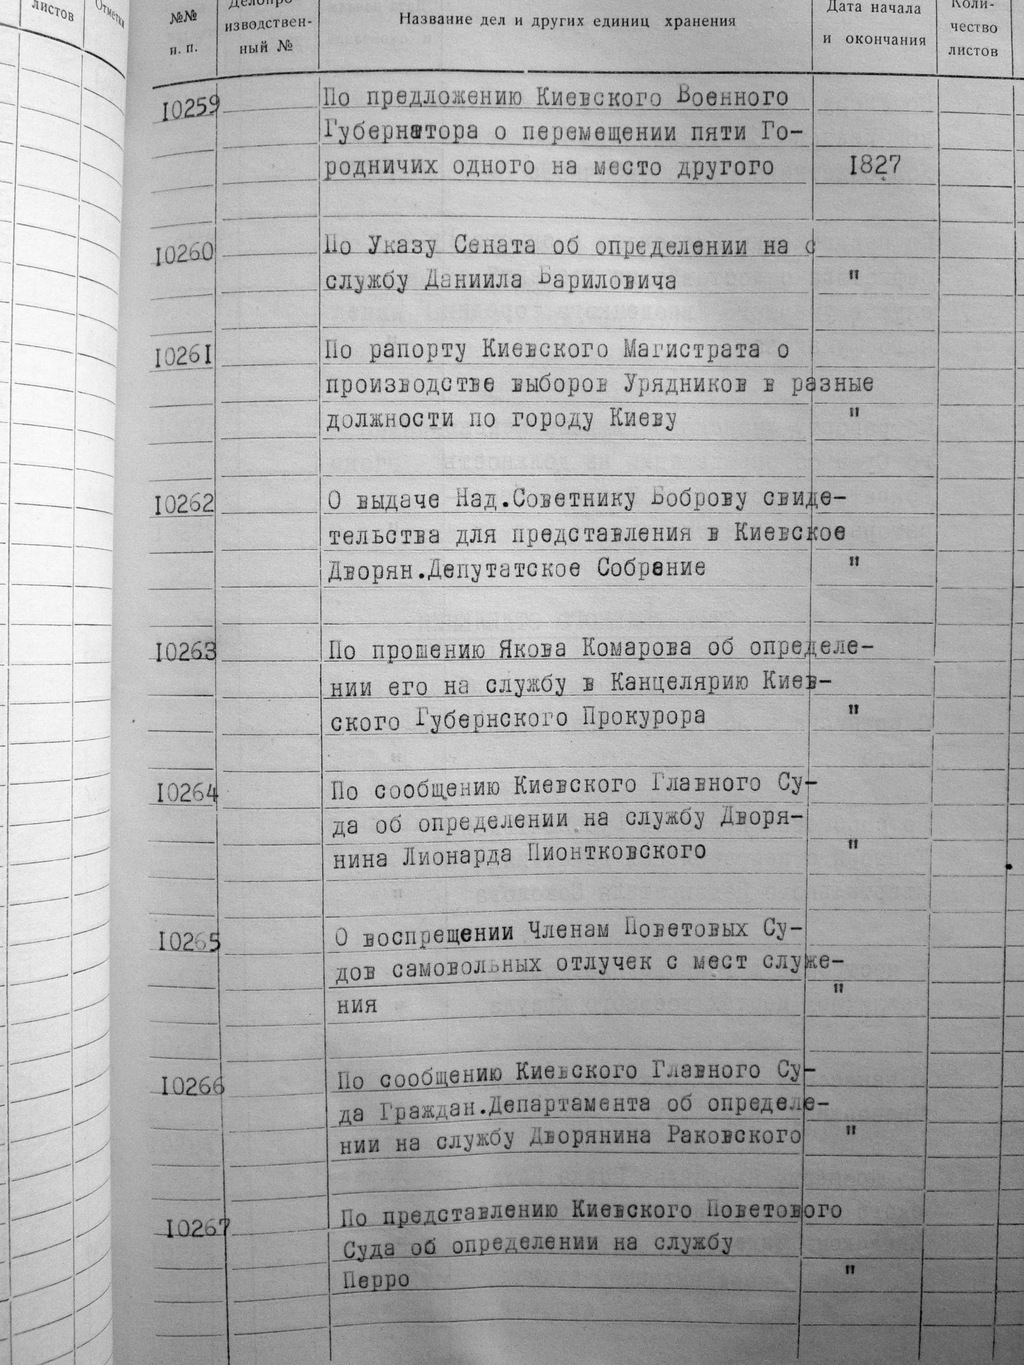 листов
Отметка
№№
п. п.
Делопро-
изводствен-
ный №
Название дел и других единиц хранения
Дата начала
и окончания
Коли-
чество
листов
10259
По предложению Киевского Военного
Губернатора о перемещении пяти Го-
родничих одного на место другого
1827
10260
По Указу Сената об определении на с
службу Даниила Вариловича
"
10261
По рапорту Киевского Магистрата о
производстве выборов Урядников в разные
должности по городу Киеву
"
10262
О выдаче Над.Советнику Боброву свиде-
тельства для представления в Киевское
Дворян.Депутатское Собрание
"
10263
По прошению Якова Комарова об определе-
нии его на службу в Канцелярию Киев-
ского Губернского Прокурора
"
10264
По сообщению Киевского Главного Су-
да об определении на службу Дворя-
нина Лионарда Пионтковского
"
10265
О воспрещении Членам Поветовых Су-
дов самовольных отлучек с мест служе-
ния
"
10266
По сообщению Киевского Главного Су-
да Граждан.Департамента об определе-
нии на службу Дворянина Раковского
"
10267
По представлению Киевского Поветового
Суда об определении на службу
Перро
"